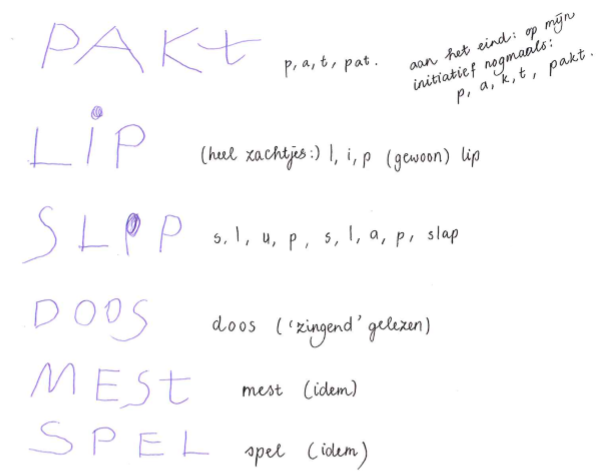 PAKt
p, a, t, pat.
aan het eind: op mijn
initiatief nogmaals:
p, a, k, t, pakt.
LiP
(heel zachtjes:) l, i, p (gewoon) lip
SLiP
s, l, u, p, s, l, a, p, slap
DOOS
doos ('zingend' gelezen)
MESt
mest (idem)
SPEL
spel (idem)